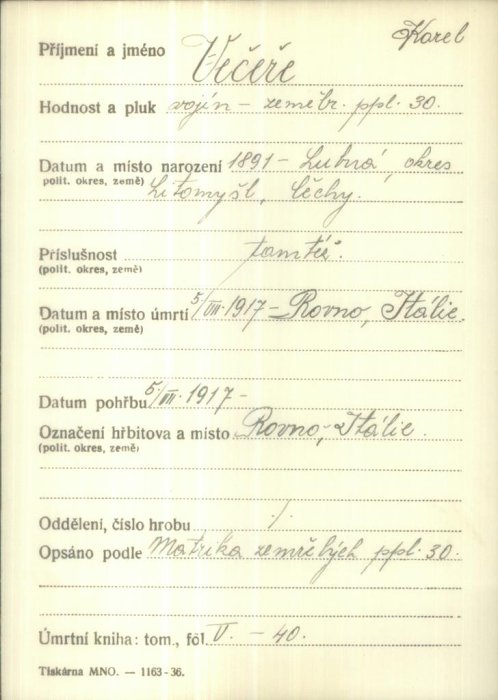 Karel
Příjmení a jméno Večeře
Hodnost a pluk vojín – zeměbr. ppl. 30.
Datum a místo narození 1891 – Lubná, okres
(polit. okres, země) Litomyšl, Čechy.
Příslušnost tamtéž.
(polit. okres, země)
Datum a místo úmrtí 5/VII. 1917 – Rovno, Itálie.
(polit. okres, země)
Datum pohřbu 5/VII. 1917 –
Označení hřbitova a místo Rovno, Itálie.
(polit. okres, země)
Oddělení, číslo hrobu ./.
Opsáno podle Matrika zemřelých ppl. 30.
Úmrtní kniha: tom., fol. V. – 40.
Tiskárna MNO. — 1163-36.